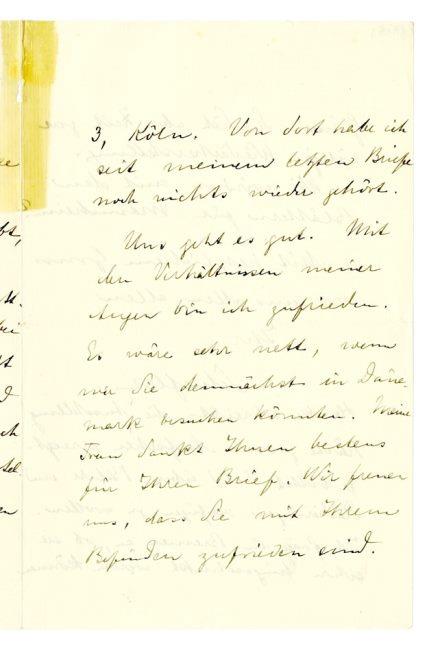 3, Köln. Von dort habe ich
seit meinem letzten Briefe
noch nichts wieder gehört.
Uns geht es gut. Mit
den Verhältnissen meiner
Augen bin ich zufrieden.
Es wäre sehr nett, wenn
wir Sie demnächst in Däne-
mark besuchen könnten. Meine
Frau dankt Ihnen bestens
für Ihren Brief. Wir freuen
uns, dass Sie mit Ihrem
Befinden zufrieden sind.